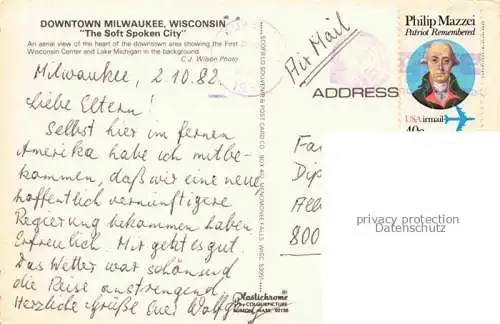 DOWNTOWN MILWAUKEE, WISCONSIN
"The Soft Spoken City"
An aerial view of the heart of the downtown area showing the First
Wisconsin Center and Lake Michigan in the background.
C. J. Wilson Photo
Milwaukee, 2.10.82
Liebe Eltern!
Selbst hier im fernen
Amerika habe ich mitbe-
kommen, daß wir eine neue
hoffentlich vernünftigere
Regierung bekommen haben.
Erfreulich. Mir geht es gut.
Das Wetter war schön und
die Reise anstrengend.
Herzliche Grüße Euer Wolfgang
SOUVENIR & POST CARD CO.
MENOMONEE FALLS, WISC.
Plastichrome
BY COLOURPICTURE
BOSTON, MASS. 02130
Air Mail
ADDRESS
Philip Mazzei
Patriot Remembered
USAirmail
40c
Fa
Dip
All
800
privacy protection
Datenschutz